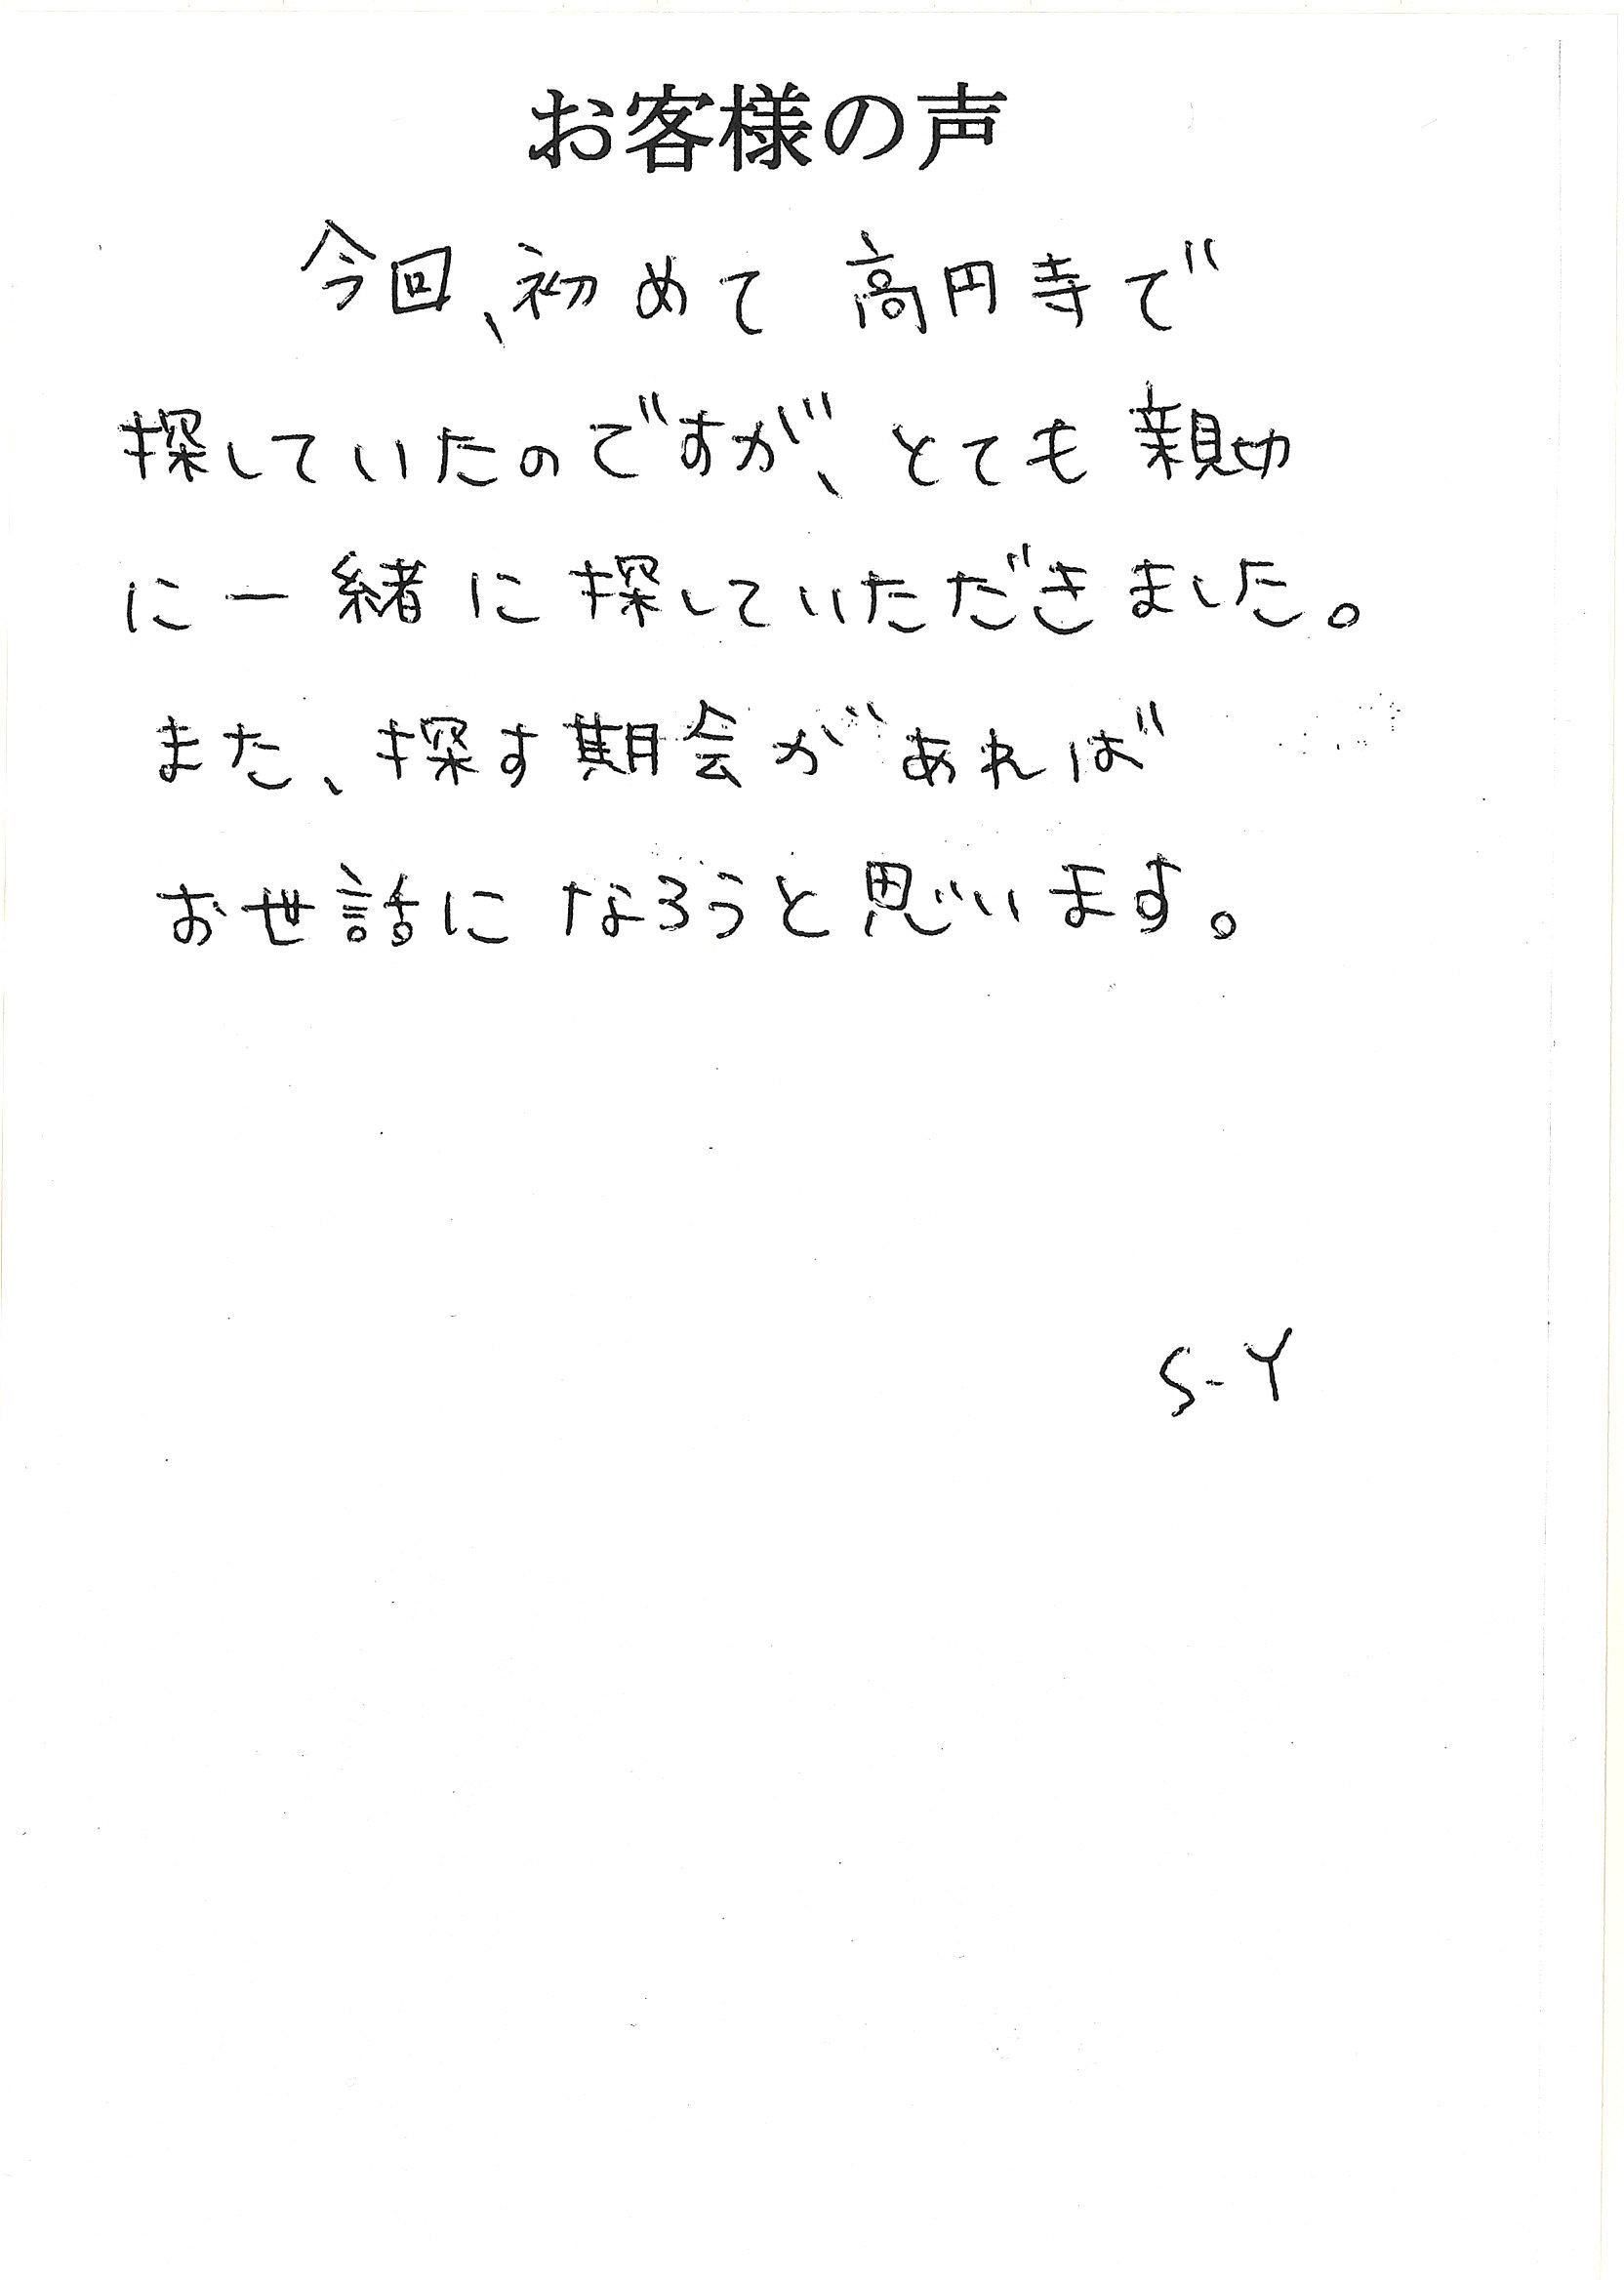 お客様の声
今回、初めて高円寺で
探していたのですが、とても親切
に一緒に探していただきました。
また、探す期会があれば
お世話になろうと思います。
S-Y